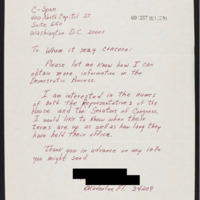 C-Span
400 North Capitol St.
Suite 650
Washington D.C. 20001
To Whom it may concern:
Please let me know how I can
obtain more information on the
Democratic Process.
I am interested in the names
of both the Representatives of the
House and the Senators of Congress.
I would like to know when their
terms are up as well as how long they
have held their office.
Thank you in advance on any info
you might send
34209